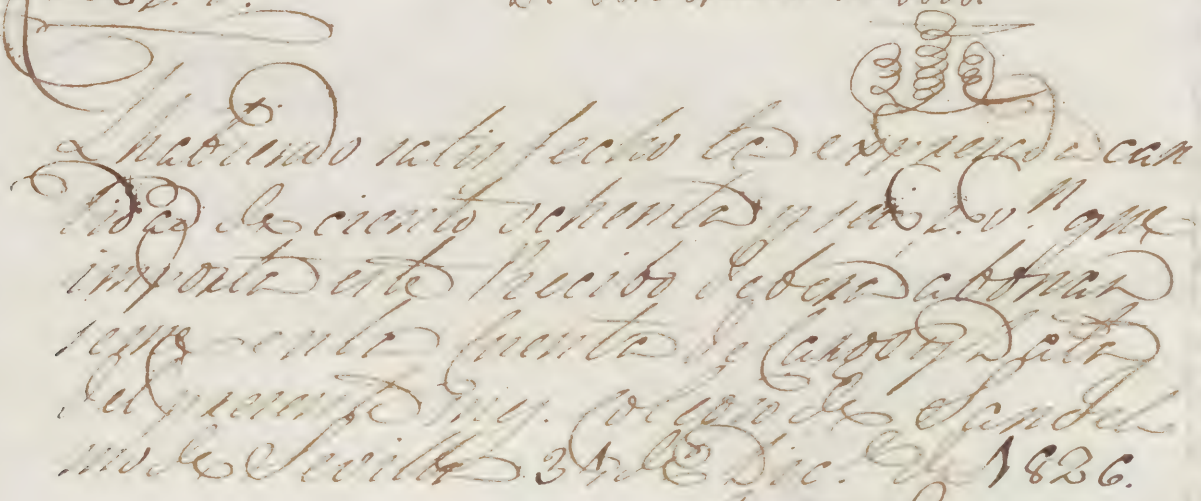 Habiendo satisfecho la expresada can
tidad de ciento ochenta y seis r.s v.n que
importa este Recibo deberá abonar
seme en la cuenta de Cargo y Data
del presente m.y. Colegio de Santel
mo de Sevilla 31 de Dic.e de 1826.